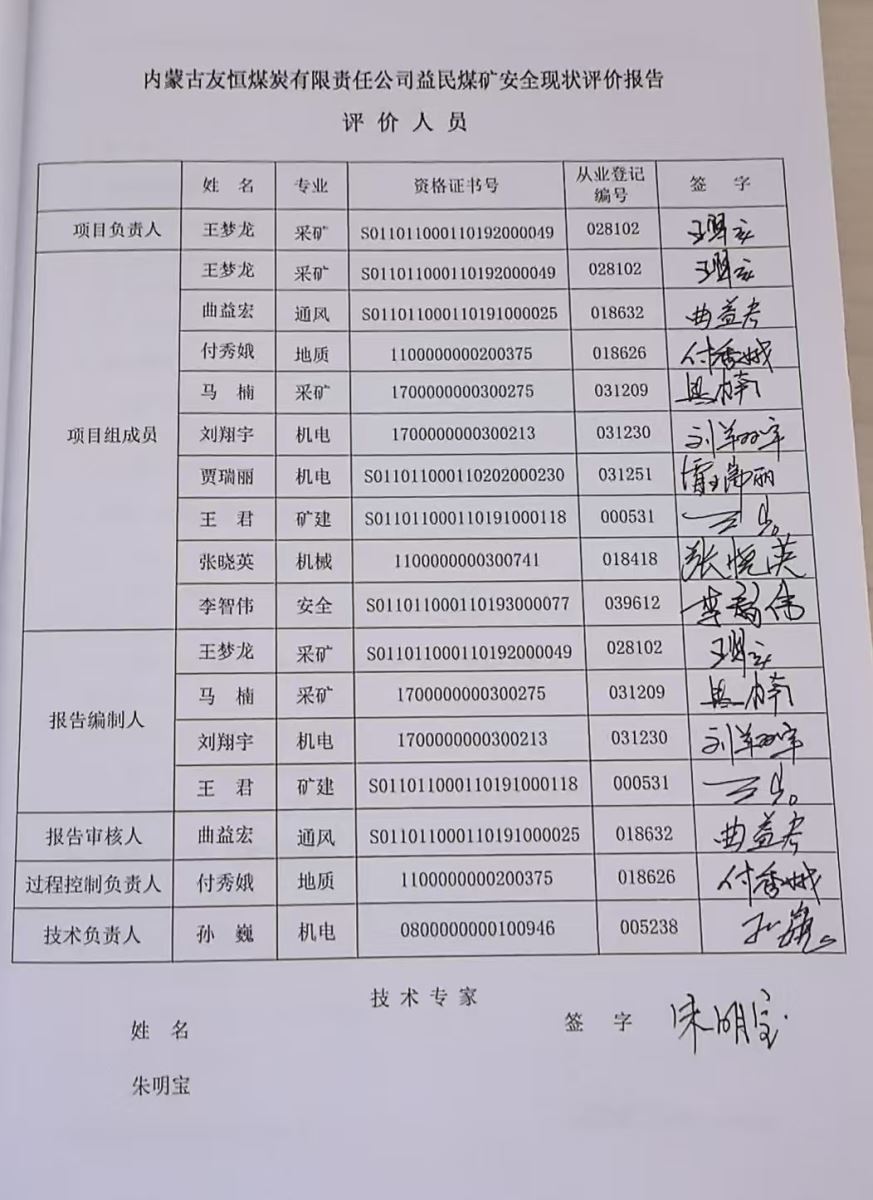 内蒙古友恒煤炭有限责任公司益民煤矿安全现状评价报告
评价人员
姓 名 专业 资格证书号 从业登记编号 签 字
项目负责人 王梦龙 采矿 S011011000110192000049 028102
项目组成员 王梦龙 采矿 S011011000110192000049 028102
曲益宏 通风 S011011000110191000025 018632 曲益宏
付秀娥 地质 1100000000200375 018626 付秀娥
马 楠 采矿 1700000000300275 031209 马楠
刘翔宇 机电 1700000000300213 031230 刘翔宇
贾瑞丽 机电 S011011000110202000230 031251 贾瑞丽
王 君 矿建 S011011000110191000118 000531
张晓英 机械 1100000000300741 018418 张晓英
李智伟 安全 S011011000110193000077 039612 李智伟
报告编制人 王梦龙 采矿 S011011000110192000049 028102
马 楠 采矿 1700000000300275 031209 马楠
刘翔宇 机电 1700000000300213 031230 刘翔宇
王 君 矿建 S011011000110191000118 000531
报告审核人 曲益宏 通风 S011011000110191000025 018632 曲益宏
过程控制负责人 付秀娥 地质 1100000000200375 018626 付秀娥
技术负责人 孙 巍 机电 0800000000100946 005238 孙巍
技术专家
姓 名 签 字 朱明宝
朱明宝